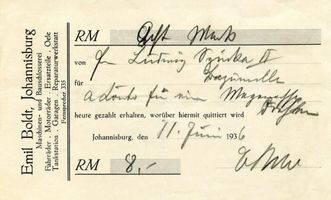 Emil Boldt, Johannisburg
Maschinen- und Bauschlosserei
Fahrräder . Motorräder . Ersatzteile . Oele
Tankstation . Garagen . Reparaturwerkstatt
Fernsprecher 335
RM Acht Mark
von Fr. Ludwig II
für
a Konto für ein
heute gezahlt erhalten, worüber hiermit quittiert wird
Johannisburg, den 11. Juni 1936
RM 8,-